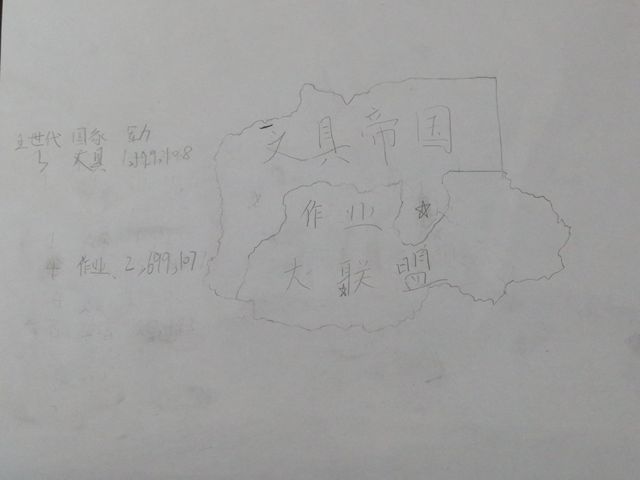 主世代 国家 军力
5 文具 1,399,908
4 作业 2,699,107
文具帝国
作业
大联盟